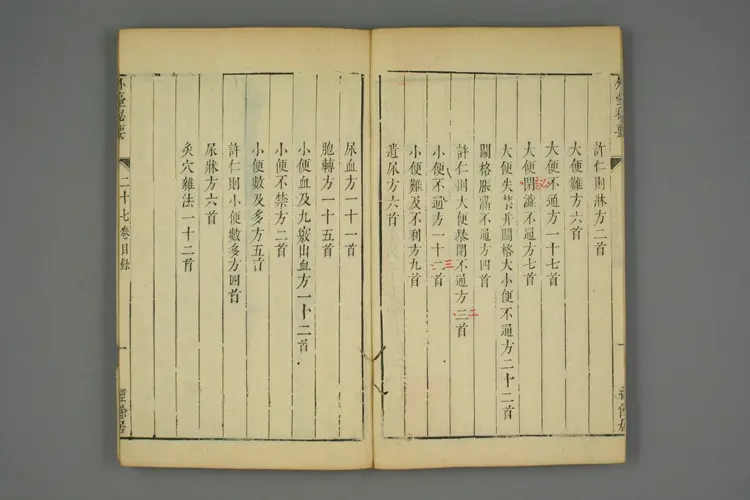 外臺秘要
許仁則淋方二首
大便難方六首
大便不通方一十七首
大便閉澁不通方七首
秘
大便失禁并關格大小便不通方二十二首
關格脹滿不通方四首
許仁則大便暴閉不通方三首
二
小便不通方一十二首
三
小便難及不利方九首
遺尿方六首
尿血方一十一首
胞轉方一十五首
小便血及九竅出血方一十二首
小便不禁方二首
小便數及多方五首
許仁則小便數多方四首
尿牀方六首
灸穴雜法一十二首
外臺秘要
二十七卷目錄
一
經餘居